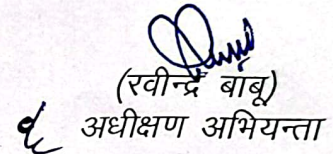 (रवीन्द्र बाबू)
अधीक्षण अभियन्ता